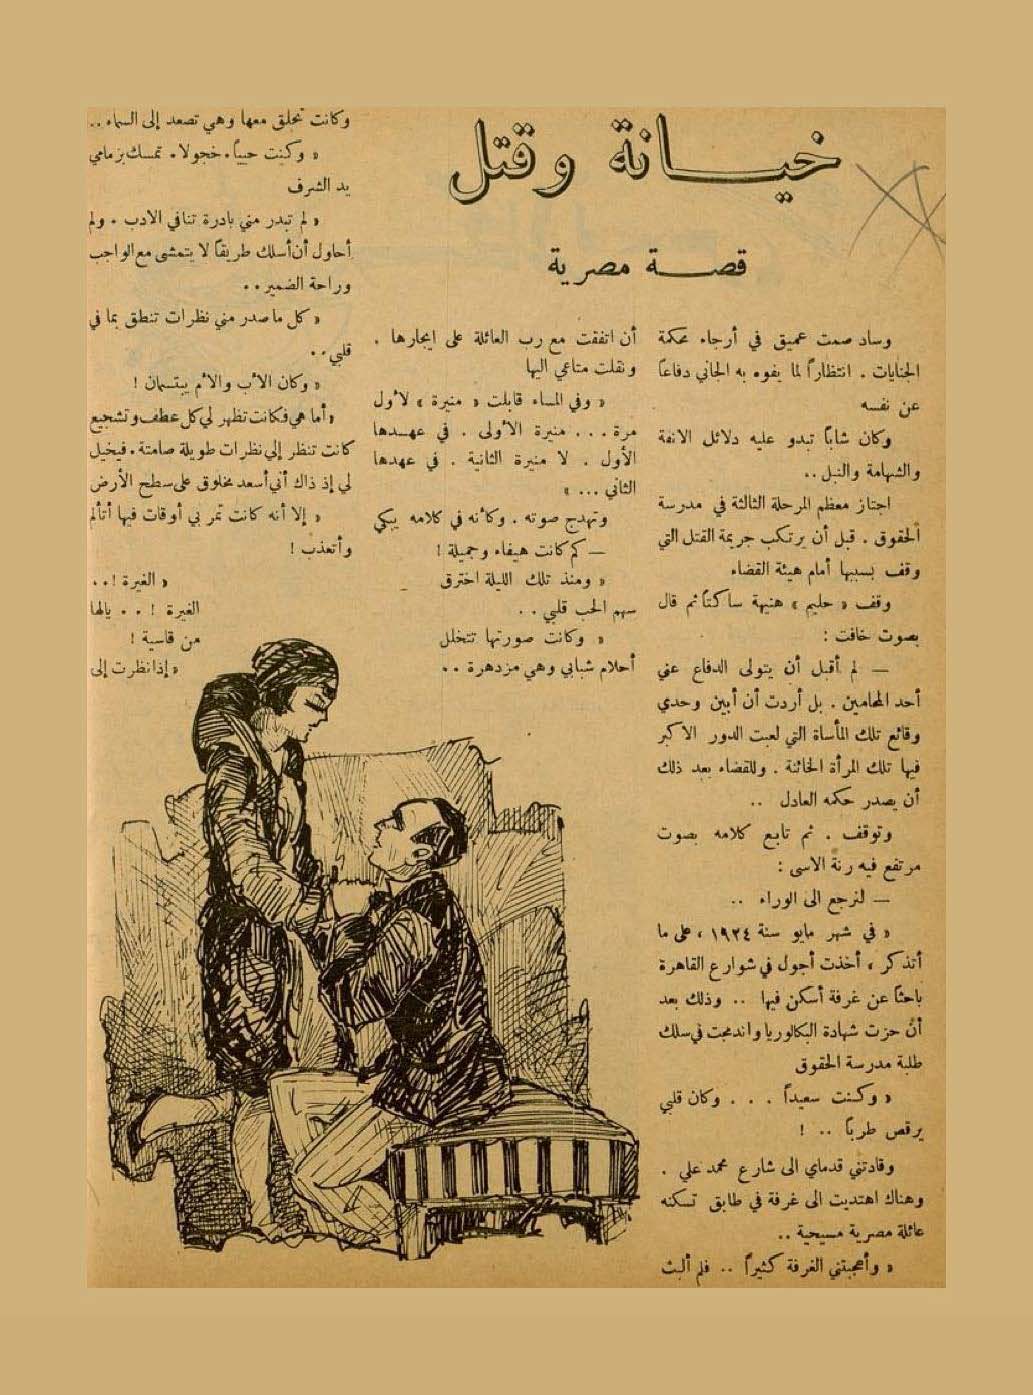 خيانة وقتل
قصة مصرية
وساد صمت عميق في أرجاء محكمة
الجنايات . انتظاراً لما يفوه به الجاني دفاعاً
عن نفسه
وكان شاباً تبدو عليه دلائل الانفة
والشهامة والنبل ..
اجتاز معظم المرحلة الثالثة في مدرسة
الحقوق . قبل أن يرتكب جريمة القتل التي
وقف بسببها أمام هيئة القضاء
وقف « حليم » هنيهة ساكتاً ثم قال
بصوت خافت :
— لم أقبل أن يتولى الدفاع عني
أحد المحامين . بل أردت أن أبين وحدي
وقائع تلك المأساة التي لعبت الدور الاكبر
فيها تلك المرأة الخائنة . وللقضاء بعد ذلك
أن يصدر حكمه العادل ..
وتوقف . ثم تابع كلامه بصوت
مرتفع فيه رنة الاسى :
— لنرجع الى الوراء ..
« في شهر مايو سنة ١٩٢٤ ، على ما
أتذكر ، أخذت أجول في شوارع القاهرة
باحثاً عن غرفة أسكن فيها .. وذلك بعد
أن حزت شهادة البكالوريا واندمجت في سلك
طلبة مدرسة الحقوق
« وكنت سعيداً . . . وكان قلبي
يرقص طرباً .. !
وقادتني قدماي الى شارع محمد علي .
وهناك اهتديت الى غرفة في طابق تسكنه
عائلة مصرية مسيحية ..
« وأعجبتني الغرفة كثيراً .. فلم ألبث
أن اتفقت مع رب العائلة على ايجارها .
ونقلت متاعي اليها
« وفي المساء قابلت « منيرة » لأول
مرة ... منيرة الأولى . في عهدها
الأول . لا منيرة الثانية . في عهدها
الثاني ... »
وتهدج صوته . وكأنه في كلامه يبكي
— كم كانت هيفاء وجميلة !
« ومنذ تلك الليلة اخترق
سهم الحب قلبي ..
« وكانت صورتها تتخلل
أحلام شبابي وهي مزدهرة ..
وكانت تحلق معها وهي تصعد إلى السماء ..
« وكنت حيياً . خجولا . تمسك بزمامي
يد الشرف
« لم تبدر مني بادرة تنافي الادب . ولم
أحاول أن أسلك طريقاً لا يتمشى مع الواجب
وراحة الضمير ..
« كل ما صدر مني نظرات تنطق بما في
قلبي ..
« وكان الأب والأم يبتسمان !
« أما هي فكانت تظهر لي كل عطف وتشجيع
كانت تنظر إلي نظرات طويلة صامتة . فيخيل
لي إذ ذاك أني أسعد مخلوق على سطح الأرض
« إلا أنه كانت تمر بي أوقات فيها أتألم
وأتعذب !
« الغيرة ! ..
الغيرة ! .. يالها
من قاسية !
« إذا نظرت إلى